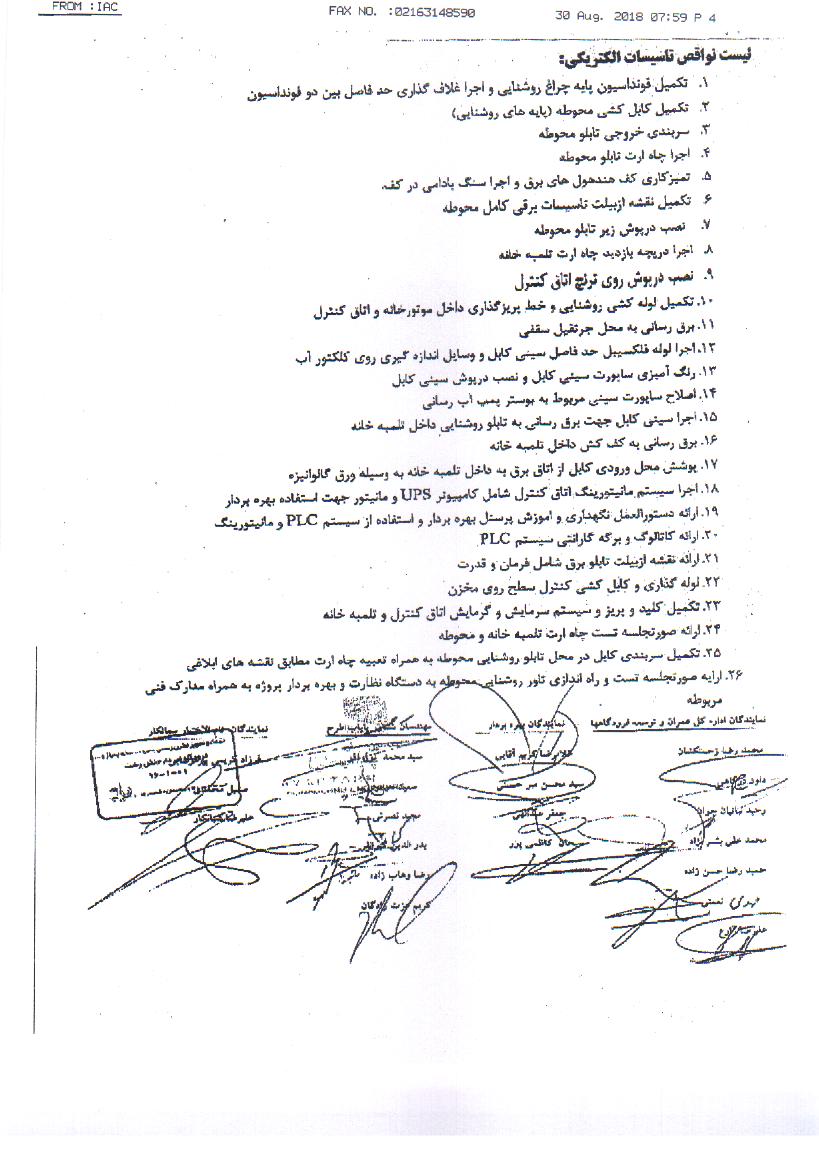 FROM : IAC
FAX NO. :02163148590
30 Aug. 2018 07:59 P 4
لیست نواقص تاسیسات الکتریکی:
۱. تکمیل فونداسیون پایه چراغ روشنایی و اجرا غلاف گذاری حد فاصل بین دو فونداسیون
۲. تکمیل کابل کشی محوطه (پایه های روشنایی)
۳. سربندی خروجی تابلو محوطه
۴. اجرا چاه ارت تابلو محوطه
۵. تمیزکاری کف هندهول های برق و اجرا سنگ بادامی در کف.
۶. تکمیل نقشه ازبیلت تاسیسات برقی کامل محوطه
۷. نصب درپوش زیر تابلو محوطه
۸. اجرا دریچه بازدید چاه ارت تلمبه خانه
۹. نصب درپوش روی ترنچ اتاق کنترل
۱۰. تکمیل لوله کشی روشنایی و خط پریزگذاری داخل موتورخانه و اتاق کنترل
۱۱. برق رسانی به محل جرثقیل سقفی
۱۲. اجرا لوله فلکسیبل حد فاصل سینی کابل و وسایل اندازه گیری روی کلکتور آب
۱۳. رنگ آمیزی ساپورت سینی کابل و نصب درپوش سینی کابل
۱۴. اصلاح ساپورت سینی مربوط به بوستر پمپ آب رسانی
۱۵. اجرا سینی کابل جهت برق رسانی به تابلو روشنایی داخل تلمبه خانه
۱۶. برق رسانی به کف کش داخل تلمبه خانه
۱۷. پوشش محل ورودی کابل از اتاق برق به داخل تلمبه خانه به وسیله ورق گالوانیزه
۱۸. اجرا سیستم مانیتورینگ اتاق کنترل شامل کامپیوتر UPS و مانیتور جهت استفاده بهره بردار
۱۹. ارائه دستورالعمل نگهداری و اموزش پرسنل بهره بردار و استفاده از سیستم PLC و مانیتورینگ
۲۰. ارائه کاتالوگ و برگه گارانتی سیستم PLC
۲۱. ارائه نقشه ازبیلت تابلو برق شامل فرمان و قدرت
۲۲. لوله گذاری و کابل کشی کنترل سطح روی مخزن
۲۳. تکمیل کلید و پریز و سیستم سرمایش و گرمایش اتاق کنترل و تلمبه خانه
۲۴. ارائه صورتجلسه تست چاه ارت تلمبه خانه و محوطه
۲۵. تکمیل سربندی کابل در محل تابلو روشنایی محوطه به همراه تعبیه چاه ارت مطابق نقشه های ابلاغی
۲۶. ارایه صورتجلسه تست و راه اندازی تاور روشنایی محوطه به دستگاه نظارت و بهره بردار پروژه به همراه مدارک فنی
مربوطه
نمایندگان اداره کل عمران و توسعه فرودگاهها
محمد رضا زحمتکشان
داود
وحید
محمد علی
حمید رضا حسن زاده
مهدی نعمتی
نمایندگان بهره بردار
غلامرضا کریم آقایی
سید محسن میر حسنی
جعفر عبدالهی
کاظمی پور
مهندسان
سید محمد
مجید نصرتی
بدر الدین
رضا وهاب زاده
کریم عزت زادگان
نمایندگان
فرزاد
علیرضا